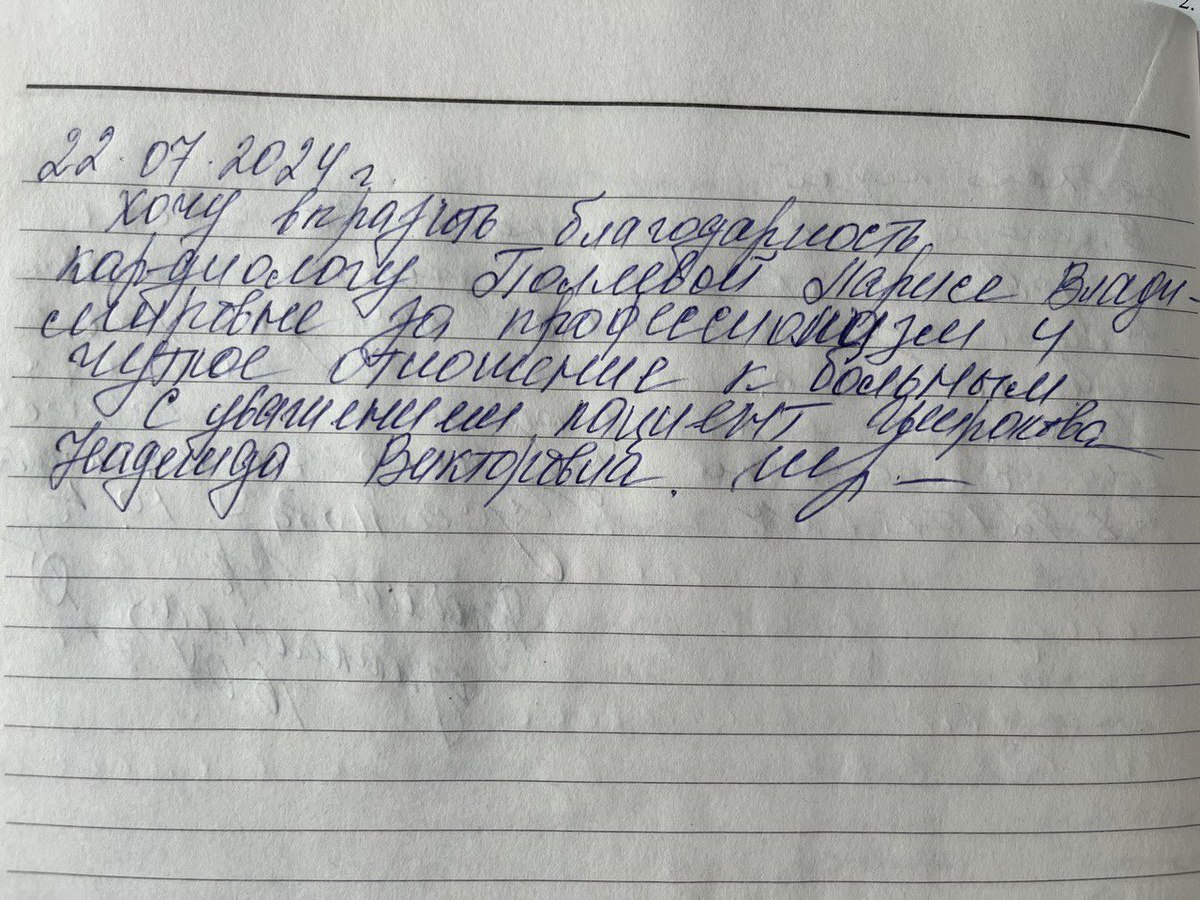 22.07.2024 г.
Хочу выразить благодарность
кардиологу Полевой Ларисе Влади-
мировне за профессионализм и
чуткое отношение к больным
С уважением пациент
Надежда Викторовна.
2.